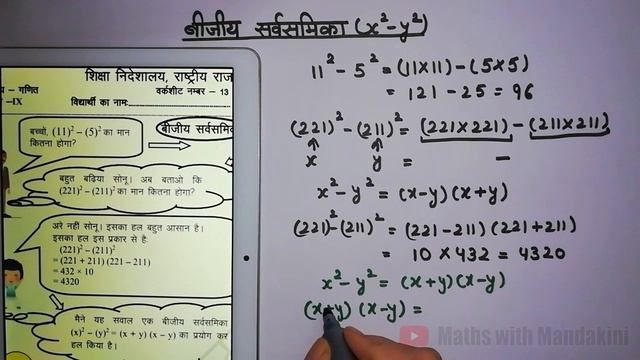 बीजीय सर्वसमिका (x²-y²)
शिक्षा निदेशालय, राष्ट्रीय राज
– गणित
वर्कशीट नम्बर – 13
–IX
विद्यार्थी का नामः
बच्चो, (11)² – (5)² का मान
कितना होगा?
बीजीय सर्वसमि
बहुत बढ़िया सोनू। अब बताओ कि
(221)² – (211)² का मान कितना होगा?
अरे नहीं सोनू। इसका हल बहुत आसान है।
इसका हल इस प्रकार से है:
(221)² – (211)²
= (221 + 211) (221 – 211)
= 432 × 10
= 4320
मैने यह सवाल एक बीजीय सर्वसमिका
(x)² – (y)² = (x + y) (x – y) का प्रयोग कर
हल किया है।
11² - 5² = (11×11) - (5×5)
= 121 - 25 = 96
(221)² - (211)² = (221×221) - (211×211)
x y = -
x² - y² = (x-y) (x+y)
(221)² - (211)² = (221-211) (221+211)
= 10 × 432 = 4320
x² - y² = (x+y) (x-y)
(x+y) (x-y) =
Maths with Mandakini